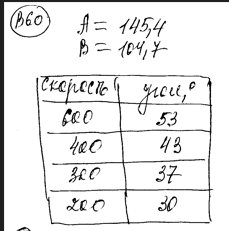 B60
A = 145,4
B = 104,7
скорость угол,°
600 53
400 43
300 37
200 30